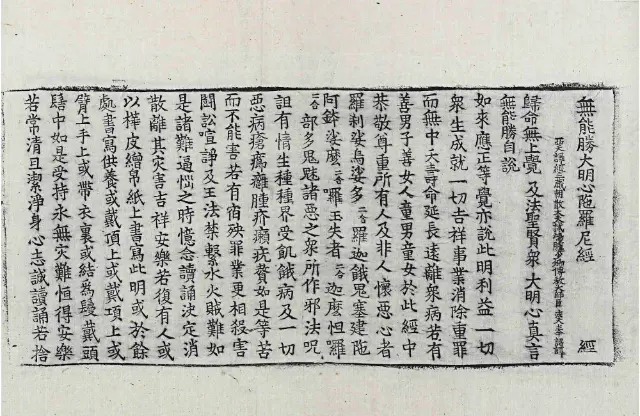 無能勝大明心陁羅尼經 經
西天譯經三藏朝散大夫試鴻臚少卿傳教大師臣法天奉 詔譯
歸命無上覺 及法聖賢衆 大明心真言
無能勝自說
如來應正等覺亦說此明利益一切
衆生成就一切吉祥事業消除重罪
而無中夭壽命延長遠離衆病若有
善男子善女人童男童女於此經中
恭敬尊重所有人及非人懷惡心者
羅刹娑烏娑多二合羅迦餓鬼塞建陁
阿鉢娑麽二合羅王失者二合迦麽怛羅
二合部多鬼魅諸惡之衆所作邪法呪
詛有情生種種界受飢餓病及一切
惡病瘡癘癰腫疥癩疣贅如是等苦
而不能害若有宿殃罪業更相殺害
鬪訟喧諍及王法禁繫水火賊難如
是諸難逼惱之時憶念讀誦決定消
散離其灾害吉祥安樂若復有人或
以樺皮繒帛紙上書寫此明或於餘
處書寫供養或戴頂上或戴頂上或
臂上手上或帶衣裏或結爲鬘戴頭
髻中如是受持永無灾難恒得安樂
若常清旦潔淨身心志誠讀誦若捨